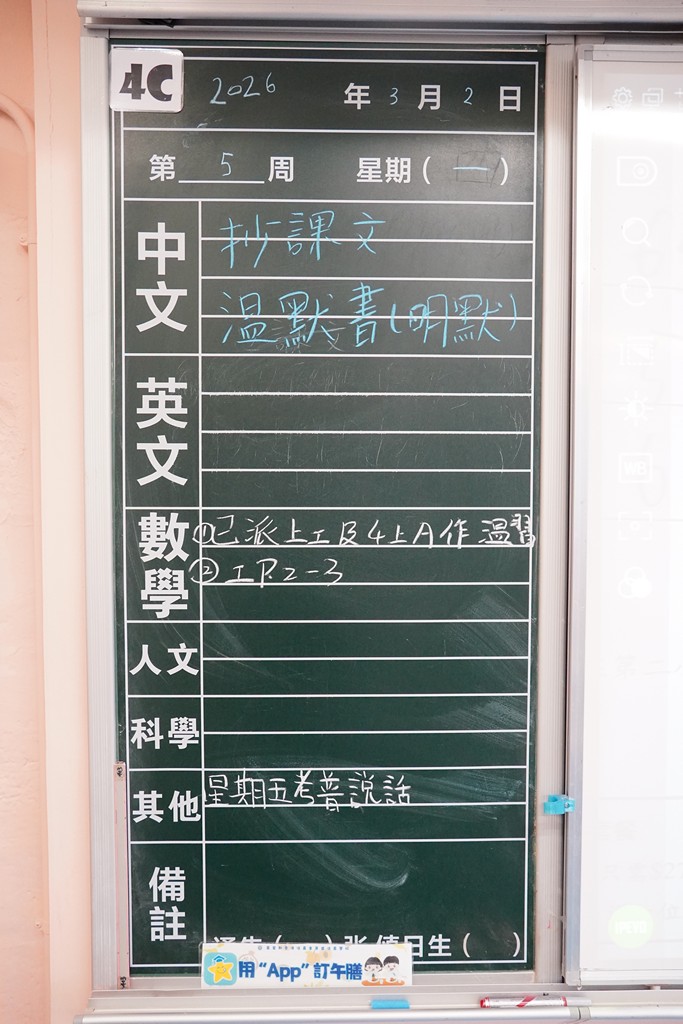 4C 2026 年 3 月 2 日
第 5 周 星期(一)
中文
抄課文
溫默書(明默)
英文
數學
①已派上工及4上A作溫習
②工P.2-3
人文
科學
其他
星期五考普說話
備註
通告( )張 值日生( )
用“App”訂午膳
WB